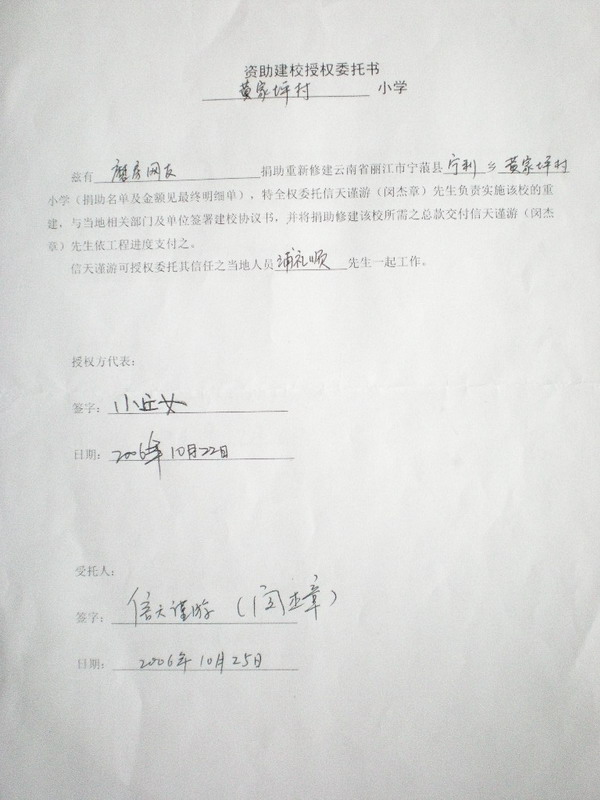 资助建校授权委托书
黄家坪村 小学
兹有 磨房网友 捐助重新修建云南省丽江市宁蒗县 宁利 乡 黄家坪村
小学（捐助名单及金额见最终明细单），特全权委托信天谨游（闵杰章）先生负责实施该校的重
建，与当地相关部门及单位签署建校协议书，并将捐助修建该校所需之总款交付信天谨游（闵杰
章）先生依工程进度支付之。
信天谨游可授权委托其信任之当地人员 礼顺 先生一起工作。
授权方代表：
签字：小
日期：2006年10月22日
受托人：
签字：信天谨游（闵杰章）
日期：2006年10月25日